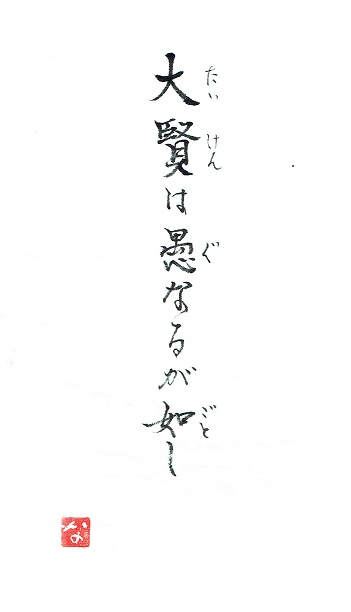 大賢は愚なるが如し
たい
けん
ぐ
ごと
な